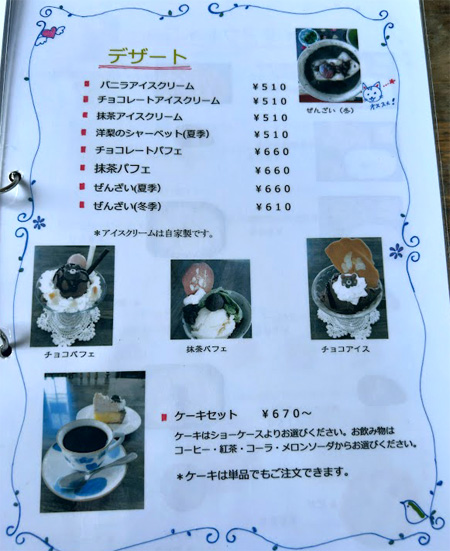 デザート
バニラアイスクリーム ￥510
チョコレートアイスクリーム ￥510
抹茶アイスクリーム ￥510
洋梨のシャーベット(夏季) ￥510
チョコレートパフェ ￥660
抹茶パフェ ￥660
ぜんざい(夏季) ￥660
ぜんざい(冬季) ￥610
＊アイスクリームは自家製です。
ぜんざい（冬）
オススメ!
チョコパフェ
抹茶パフェ
チョコアイス
ケーキセット ￥670～
ケーキはショーケースよりお選びください。お飲み物は
コーヒー・紅茶・コーラ・メロンソーダからお選びください。
＊ケーキは単品でもご注文できます。